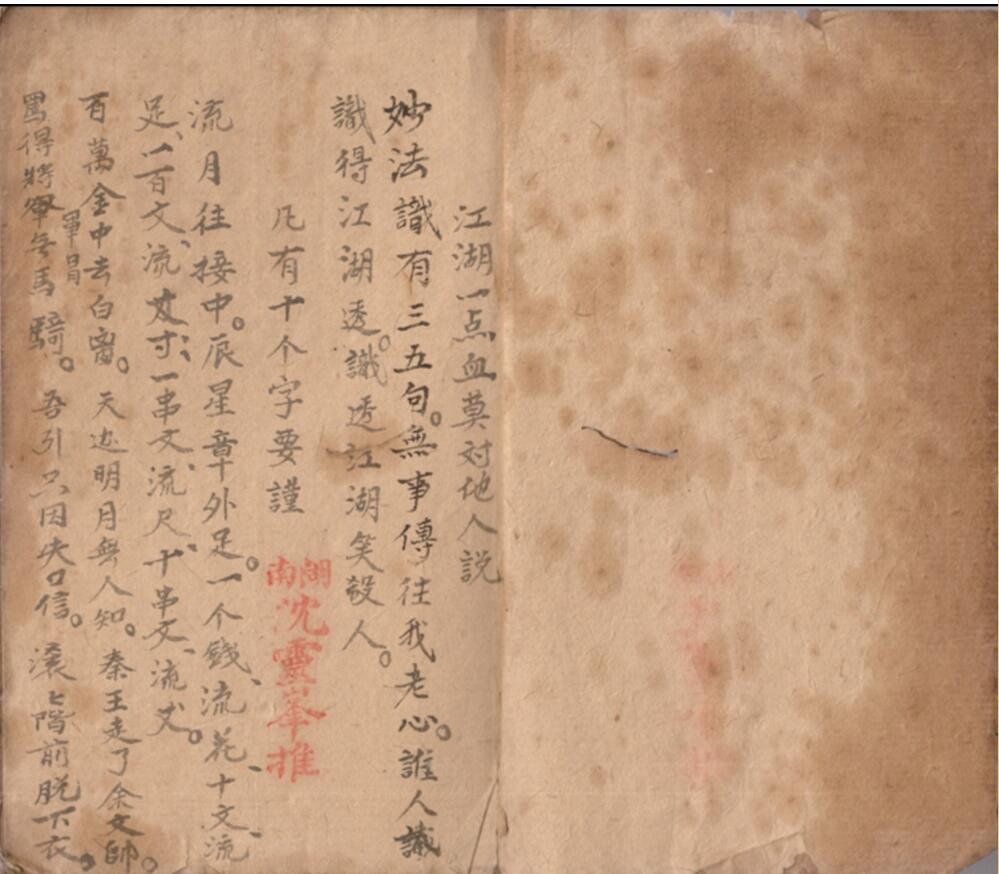 江湖一点血莫对他人説
妙法識有三五句。無事傳往我老心。誰人識
識得江湖透。識透江湖笑殺人。
凡有十个字要謹
湖南
沈靈峯推
流月往接中。辰星章外足。一个錢、流花十文、流
足、一百文、流寸、一串文、流尺、十串文、流丈。
百萬金中去白 。天边明月無人知。秦王走了余文帥。
罵得將軍無馬騎。吾引只因失口信。滚上階前脱下衣。